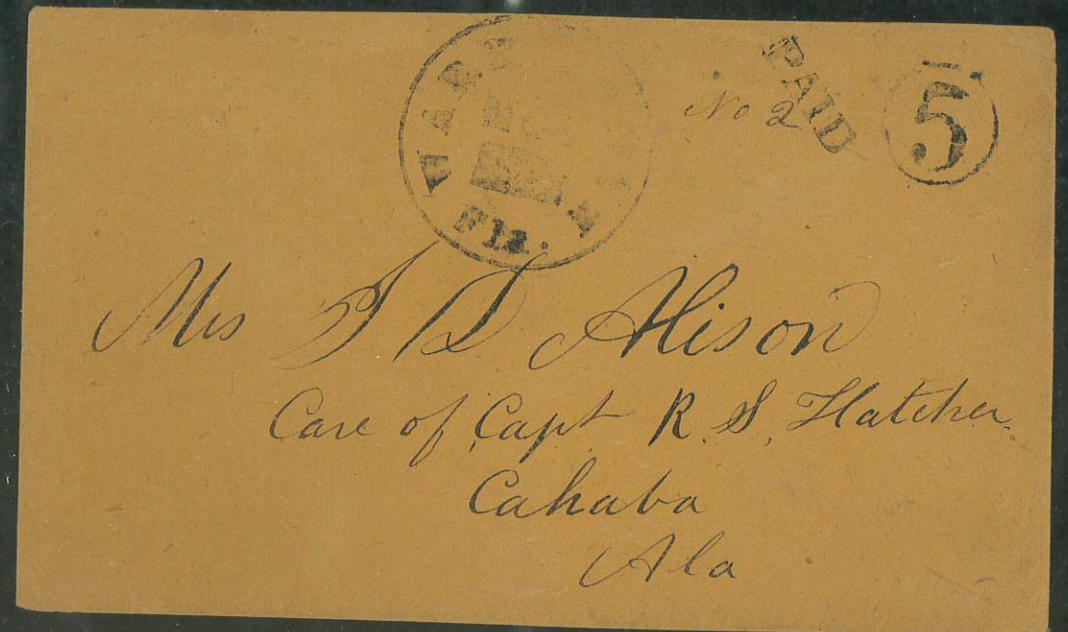 Fla.
No 2
PAID
5
Mrs J D Alison
Care of Capt R. S. Hatcher
Cahaba
Ala